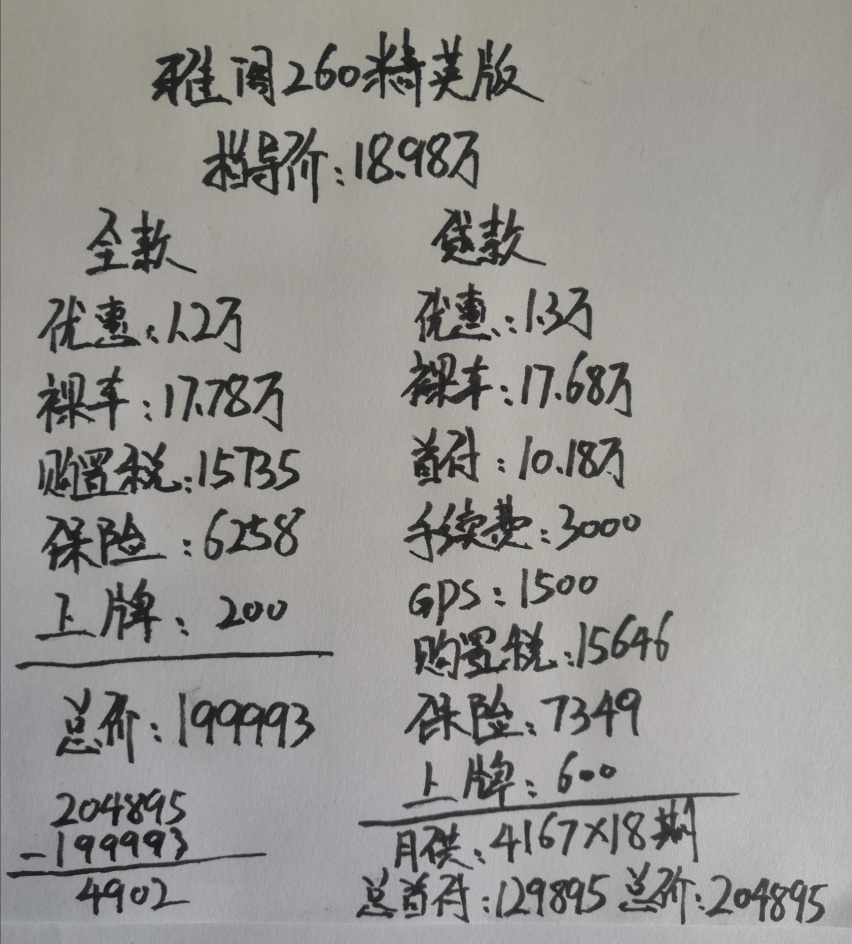 雅阁260精英版
指导价：18.98万
全款
优惠：1.2万
裸车：17.78万
购置税：15735
保险：6258
上牌：200
总价：199993
204895
-199993
4902
贷款
优惠：1.3万
裸车：17.68万
首付：10.18万
手续费：3000
GPS：1500
购置税：15646
保险：7349
上牌：600
月供：4167×18期
总首付：129895 总价：204895